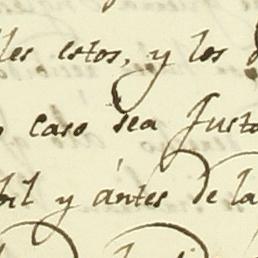 les estos, y los
caso sea Justo
bil y ántes de la